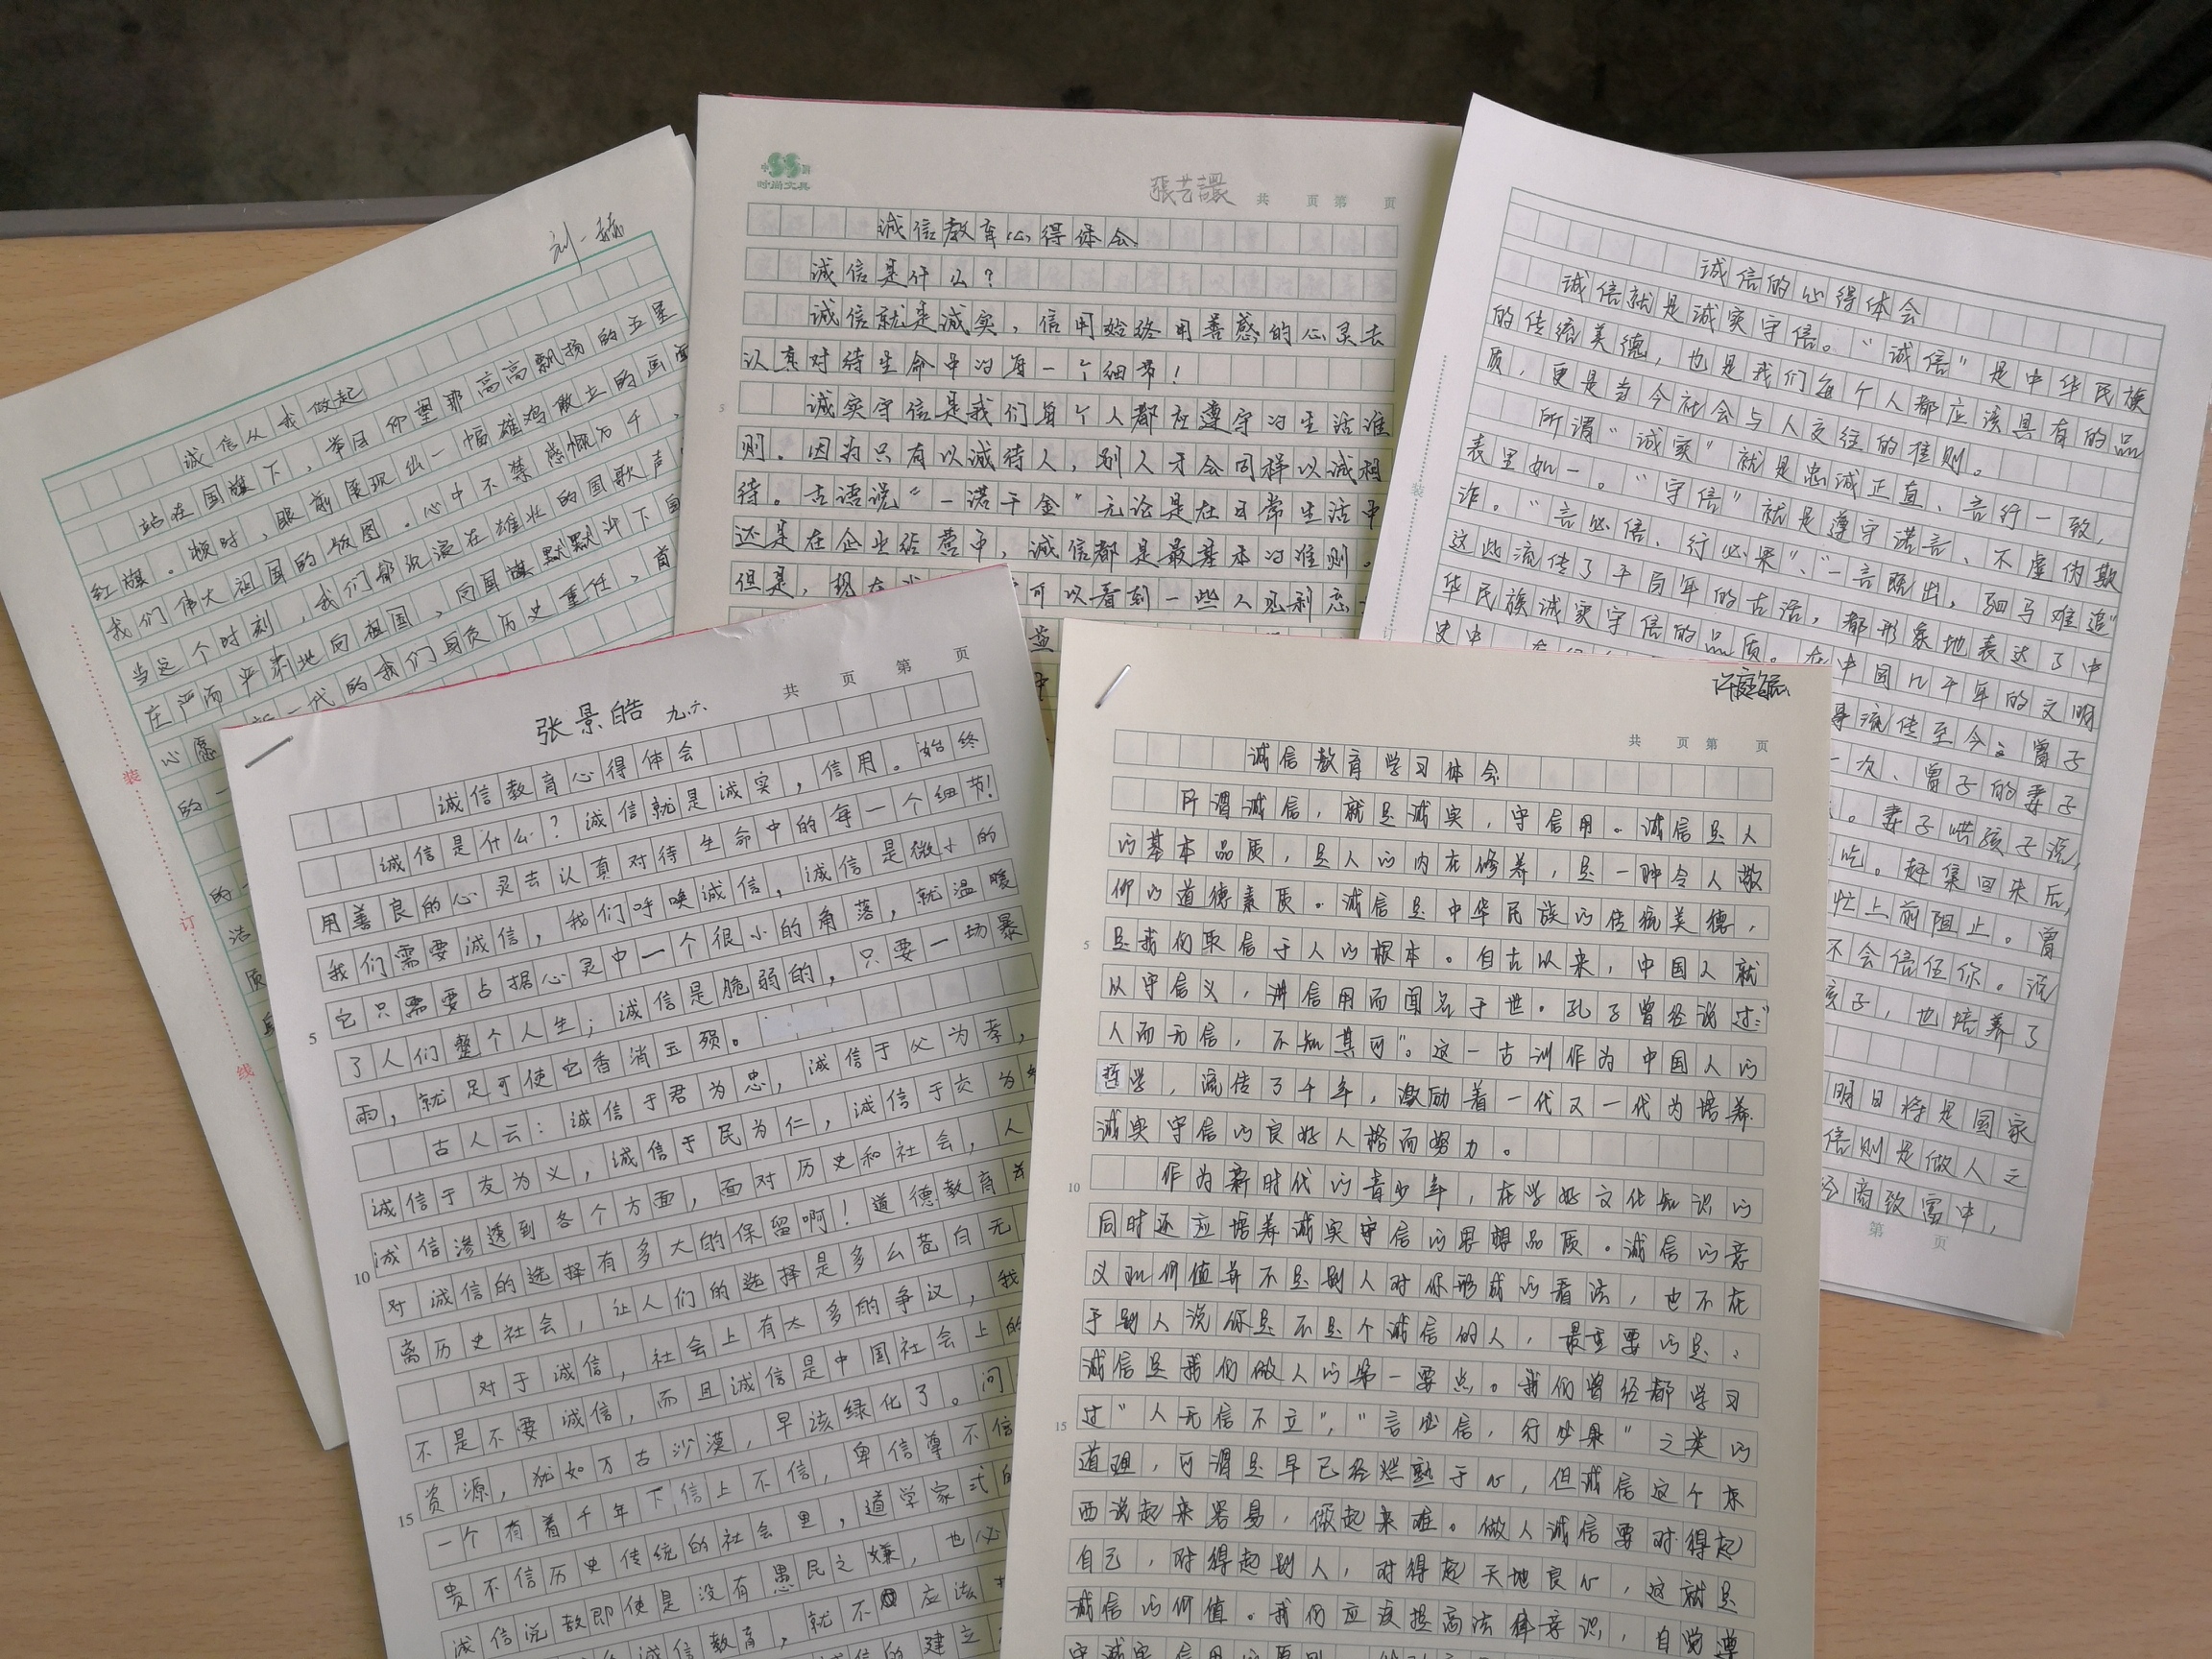 刘一赫
诚信从我做起
站在国旗下，举目仰望那高高飘扬的五星
红旗。顿时，眼前展现出一幅雄鸡敢立的画面
我们伟大祖国的版图。心中不禁感慨万千，
当这个时刻，我们都沉浸在雄壮的国歌声
庄严而平肃地向祖国，向国旗默默许下
一代的我们肩负历史重任，首
心愿
的一
装
订
线
时尚文具
共 页 第 页
诚信教育心得体会
诚信是什么？
诚信就是诚实，信用始终用善感的心灵去
认真对待生命中的每一个细节！
诚实守信是我们每个人都应遵守的生活准
则。因为只有以诚待人，别人才会同样以诚相
待。古语说“一诺千金”无论是在日常生活中
还是在企业经营中，诚信都是最基本的准则。
但是，现在
可以看到一些人见利忘
益
5
诚信的心得体会
诚信就是诚实守信。“诚信”是中华民族
的传统美德，也是我们每个人都应该具有的品
质，更是当今社会与人交往的准则。
所谓“诚实”就是忠诚正直、言行一致，
表里如一。“守信”就是遵守诺言、不虚伪欺
诈。“言必信，行必果”、“一言既出，驷马难追”
这些流传了千百年的古话，都形象地表达了中
华民族诚实守信的品质。在中国几千年的文明
史中
流传至今。曾子
一次、曾子的妻子
。妻子哄孩子说，
吃。赶集回来后，
忙上前阻止。曾
不会信任你。说
孩子，也培养了
明日将是国家
信则是做人之
经商致富中，
第 页
装
共 页 第 页
张景皓 九.六
诚信教育心得体会
诚信是什么？诚信就是诚实，信用。始终
用善良的心灵去认真对待生命中的每一个细节！
我们需要诚信，我们呼唤诚信，诚信是微小的
它只需要占据心灵中一个很小的角落，就温暖
5
了人们整个人生；诚信是脆弱的，只要一场暴
雨，就足可使它香消玉殒。
古人云：诚信于君为忠，诚信于父为孝，
诚信于友为义，诚信于民为仁，诚信于交为
诚信渗透到各个方面，面对历史和社会，人
10
对诚信的选择有多大的保留啊！道德教育
离历史社会，让人们的选择是多么苍白无
对于诚信，社会上有太多的争议，我
不是不要诚信，而且诚信是中国社会上的
资源，犹如万古沙漠，早该绿化了。问
15
一个有着千年下信上不信，卑信尊不信
贵不信历史传统的社会里，道学家式的
诚信说教即使是没有愚民之嫌，也必
诚信教育，就不应该
诚信的建立
共 页 第 页
诚信教育学习体会
所谓诚信，就是诚实，守信用。诚信是人
的基本品质，是人的内在修养，是一种令人敬
仰的道德素质。诚信是中华民族的传统美德，
5
是我们取信于人的根本。自古以来，中国人就
以守信义，讲信用而闻名于世。孔子曾经说过：“
人而无信，不知其可”。这一古训作为中国人的
哲学，流传了千年，激励着一代又一代为培养
诚实守信的良好人格而努力。
10
作为新时代的青少年，在学好文化知识的
同时还应培养诚实守信的思想品质。诚信的意
义和价值并不是别人对你形成的看法，也不在
于别人说你是不是个诚信的人，最重要的是，
诚信是我们做人的第一要点。我们曾经都学习
15
过“人无信不立”，“言必信，行必果”之类的
道理，可谓是早已经烂熟于心，但诚信这个东
西说起来容易，做起来难。做人诚信要对得起
自己，对得起别人，对得起天地良心，这就是
诚信的价值。我们应该提高法律意识，自觉遵
守诚实